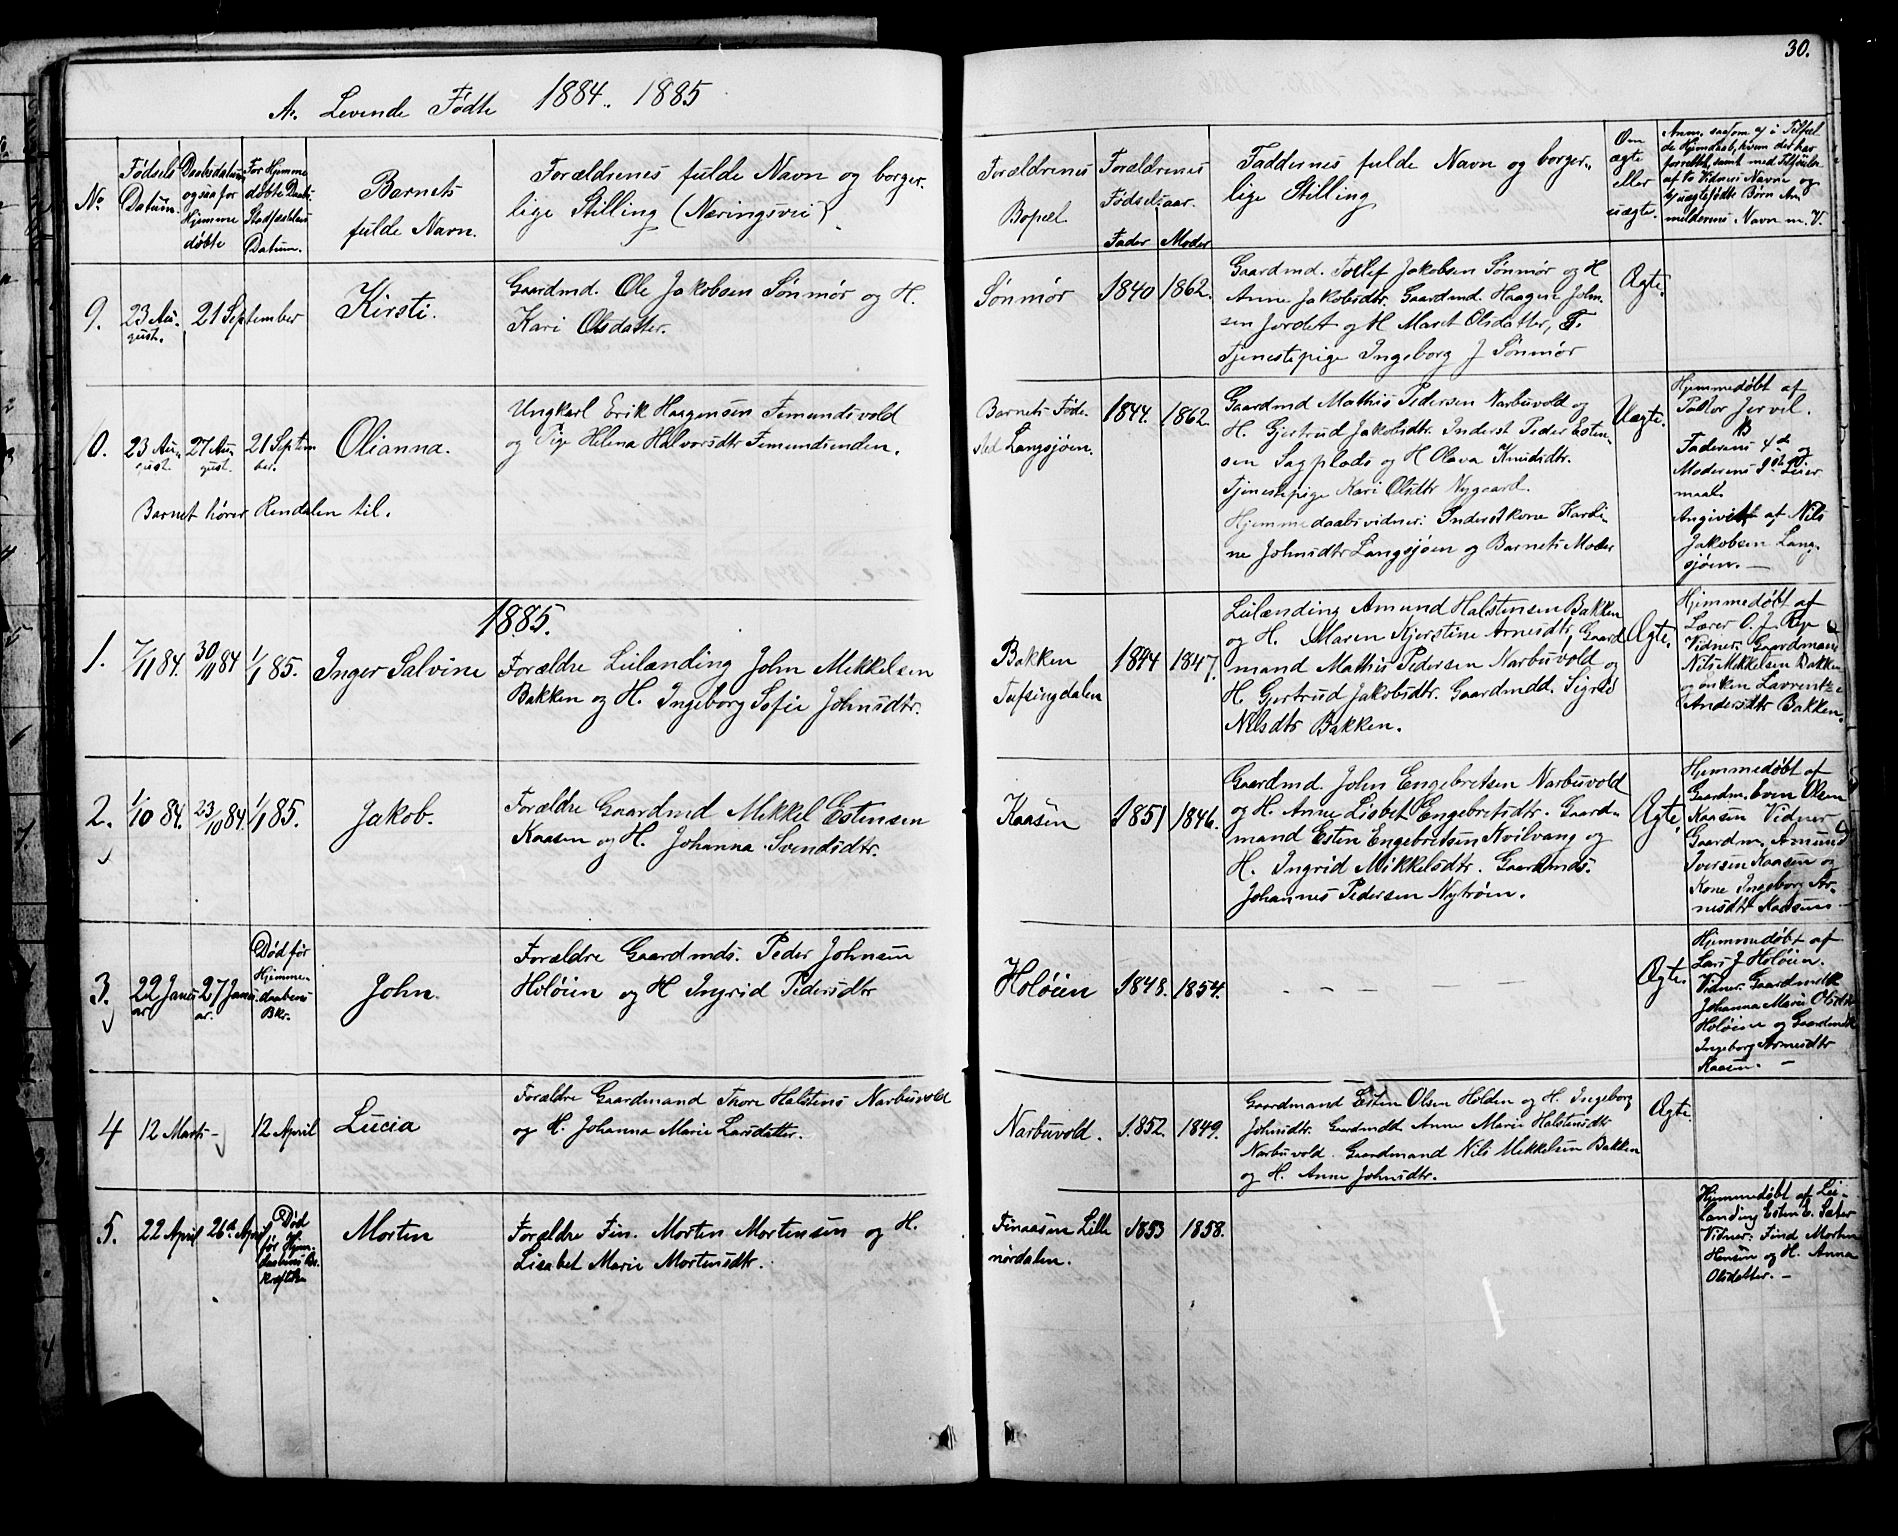 30.
A. Levende Fødte 1884. 1885
No
Fødsels
Datum.
Daabsdatum
ogsaa for
Hjemme
døbte
For Hjemme
døbte Daabs
Stadfæstelses
Datum.
Barnets
fulde Navn.
Forældrenes fulde Navn og borger-
lige Stilling (Næringsvei).
Forældrenes
Bopæl
Forældrenes
Fødselsaar.
Fader Moder
Faddernes fulde Navn og borger-
lige Stilling
Om
ægte
eller
uægte.
Anm. saasom af i Tilfæl
de Hjemdaab, hvem der har
forrettet samt med Tilføielse
af to Vidners Navne og
v/uægtefødte Børn An
melderens Navn m. V.
9.
23 Au-
gust.
21 September
Kirsti.
Gaardmd. Ole Jakobsen Sønmør og H.
Kari Olsdatter.
Sønmør
1840 1862.
Gaardmd. Tollef Jakobsen Sønmør og H
Anne Jakobsdtr. Gaardmd. Haagen John-
sen Jordet og H Maret Olsdatter,
Tjenestepige Ingeborg J Sønmør
Ægte.
0.
23 Au-
gust.
27 Au-
gust.
21 Septem
ber.
Olianna.
Ungkarl Erik Haagensen Femundsvold
og Pige Helena Halvorsdtr Femundsenden.
Barnet hører Rendalen til.
Barnets Føde-
sted Langsjøen.
1844. 1862.
Gaardmd Mathis Pedersen Narbuvold og
H. Gjertrud Jakobsdtr. Inderst Peder Esten-
sen Sagplads og H Olava Knudsdtr.
Tjenestepige Kari Olsdtr Nygaard.
Hjemmedaabsvidner: Inderstkone Karoli-
ne Johnsdtr Langsjøen og Barnets Moder
Uægte.
Hjemmedøbt af
Pastor Jervel.
Faderens 4de og
Moderens Leier
maal.
Angivet af Nils
Jakobsen Lang-
sjøen. —
1885.
1.
7/11 84.
30/11 84
1/1 85.
Inger Salvine
Forældre Leilænding John Mikkelsen
Bakken og H. Ingeborg Sofie Johnsdtr.
Bakken
Tufsingdalen
1844 1847.
Leilænding Amund Halstensen Bakken
og H. Maren Kjerstine Arnesdtr, Gaard
mand Mathis Pedersen Narbuvold og
H. Gjertrud Jakobsdtr. Gaardmdd. Sigrid
Nilsdtr Bakken.
Ægte.
Hjemmedøbt af
Lærer O. J. Rye
Vidner: Gaardmand
Nils Mikkelsen Bakken
og Enken Lavrentze
Andersdtr Bakken.
2.
1/10 84.
23/10 84.
1/1 85.
Jakob.
Forældre Gaardmd Mikkel Estensen
Kaasen og H. Johanna Svendsdtr.
Kaasen
1851 1846.
Gaardmd. John Engebretsen Narbuvold
og H. Anne Lisbet Engebretsdtr. Gaard-
mand Esten Engebretsen Kvilvang og
H. Ingrid Mikkelsdtr. Gaardmds.
Johannes Pedersen Nytrøen.
Ægte.
Hjemmedøbt af
Gaardm. Iven Olsen
Kaasen Vidner
Gaardm. Amund
Iversen Kaasen og
Kone Ingeborg Ar-
nesdtr Kaasen.
3.
22 Janu
ar.
27 Janu
ar.
Død før
Hjemme-
daabens
Bkr.
John.
Forældre Gaardmds. Peder Johnsen
Holøien og H Ingrid Pedersdtr
Holøien
1848. 1854.
- - - - - -
Ægte.
Hjemmedøbt af
Lars J Holøien.
Vidner: Gaardmdk
Johanna Marie Olsdtr
Holøien og Gaardmdk
Ingeborg Arnesdtr
Kaasen. —
4
12 Marts -
12 April
Lucia
Forældre Gaardmand Thore Halstens Narbuvold
og H. Johanna Marie Larsdatter.
Narbuvold.
1852. 1849.
Gaardmand Esten Olsen Holden og H. Ingeborg
Johnsdtr. Gaardmdd. Anne Marie Halstensdtr
Narbuvold. Gaardmand Nils Mikkelsen Bakken
og H. Anne Johnsdtr.
Ægte.
5.
22 April
26de April
Død
før Hjem
daabens Be
kræftelse
Morten
Forældre Fin. Morten Mortensen og H.
Lisabet Marie Mortensdtr.
Finaasen Lille
nørdalen.
1853 1858.
Hjemmedøbt af Lei-
lænding Esten E. Sæter
Vidner: Find Morten
Hensen og H. Anna
Olsdatter. —